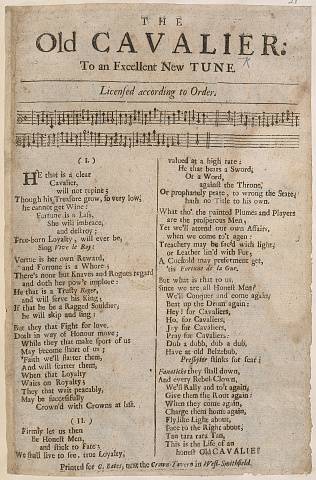 THE
Old CAVALIER:
To an Excellent New TUNE.
Licensed according to Order.
(I.)
HE that is a clear
Cavalier,
will not repine;
Though his Treasure grow, so very low,
he cannot get Wine:
Fortune is a Lass,
She will imbrace,
and destroy;
Free-born Loyalty, will ever be,
Sing Vive le Roy:
Vertue is her own Reward,
and Fortune is a Whore;
There's none but Knaves and Rogues regard
and doth her pow'r implore:
He that is a Trusty Roger,
and will serve his King;
If that he be a Ragged Souldier,
he will skip and sing:
But they that Fight for love,
Doth in way of Honour move;
While they that make sport of us
May become short of us;
'Faith we'll flatter them,
And will scatter them,
When that Loyalty
Waits on Royalty;
They that wait peaceably,
May be successfully
Crown'd with Crowns at last.
(II.)
Firmly let us then
Be Honest Men,
and stick to Fate;
We shall live to see, true Loyalty,
valued at a high rate:
He that bears a Sword;
Or a Word,
against the Throne,
Or prophanely prate, to wrong the State,
hath no Title to his own.
What tho' the painted Plumes and Players
are the prosperous Men;
Yet we'll attend our own Affairs,
when we come to't agen:
Treachery may be fac'd with light;
or Leather lin'd with Fur;
A Cuckold may preferment get,
'tis Fortune de la Gur,
But what is that to us,
Since we are all Honest Men?
We'll Conquer and come again;
Beat up the Drum again:
Hey! for Cavaliers,
Ho, for Cavaliers,
Joy for Cavaliers,
Pray for Cavaliers:
Dub a dubb, dub a dub,
Have at old Belzebub,
Presbyter stinks for fear:
Fanaticks they shall down,
And every Rebel-Clown,
We'll Rally and to't again,
Give them the Rout again:
When they come again,
Charge them home again,
Fly like Light about,
Face to the Right about;
Tan tara rara Tan,
This is the Life of an
honest Old CAVALIER.
Printed for C. Bates, next the Crown-Tavern in West-Smithfield.